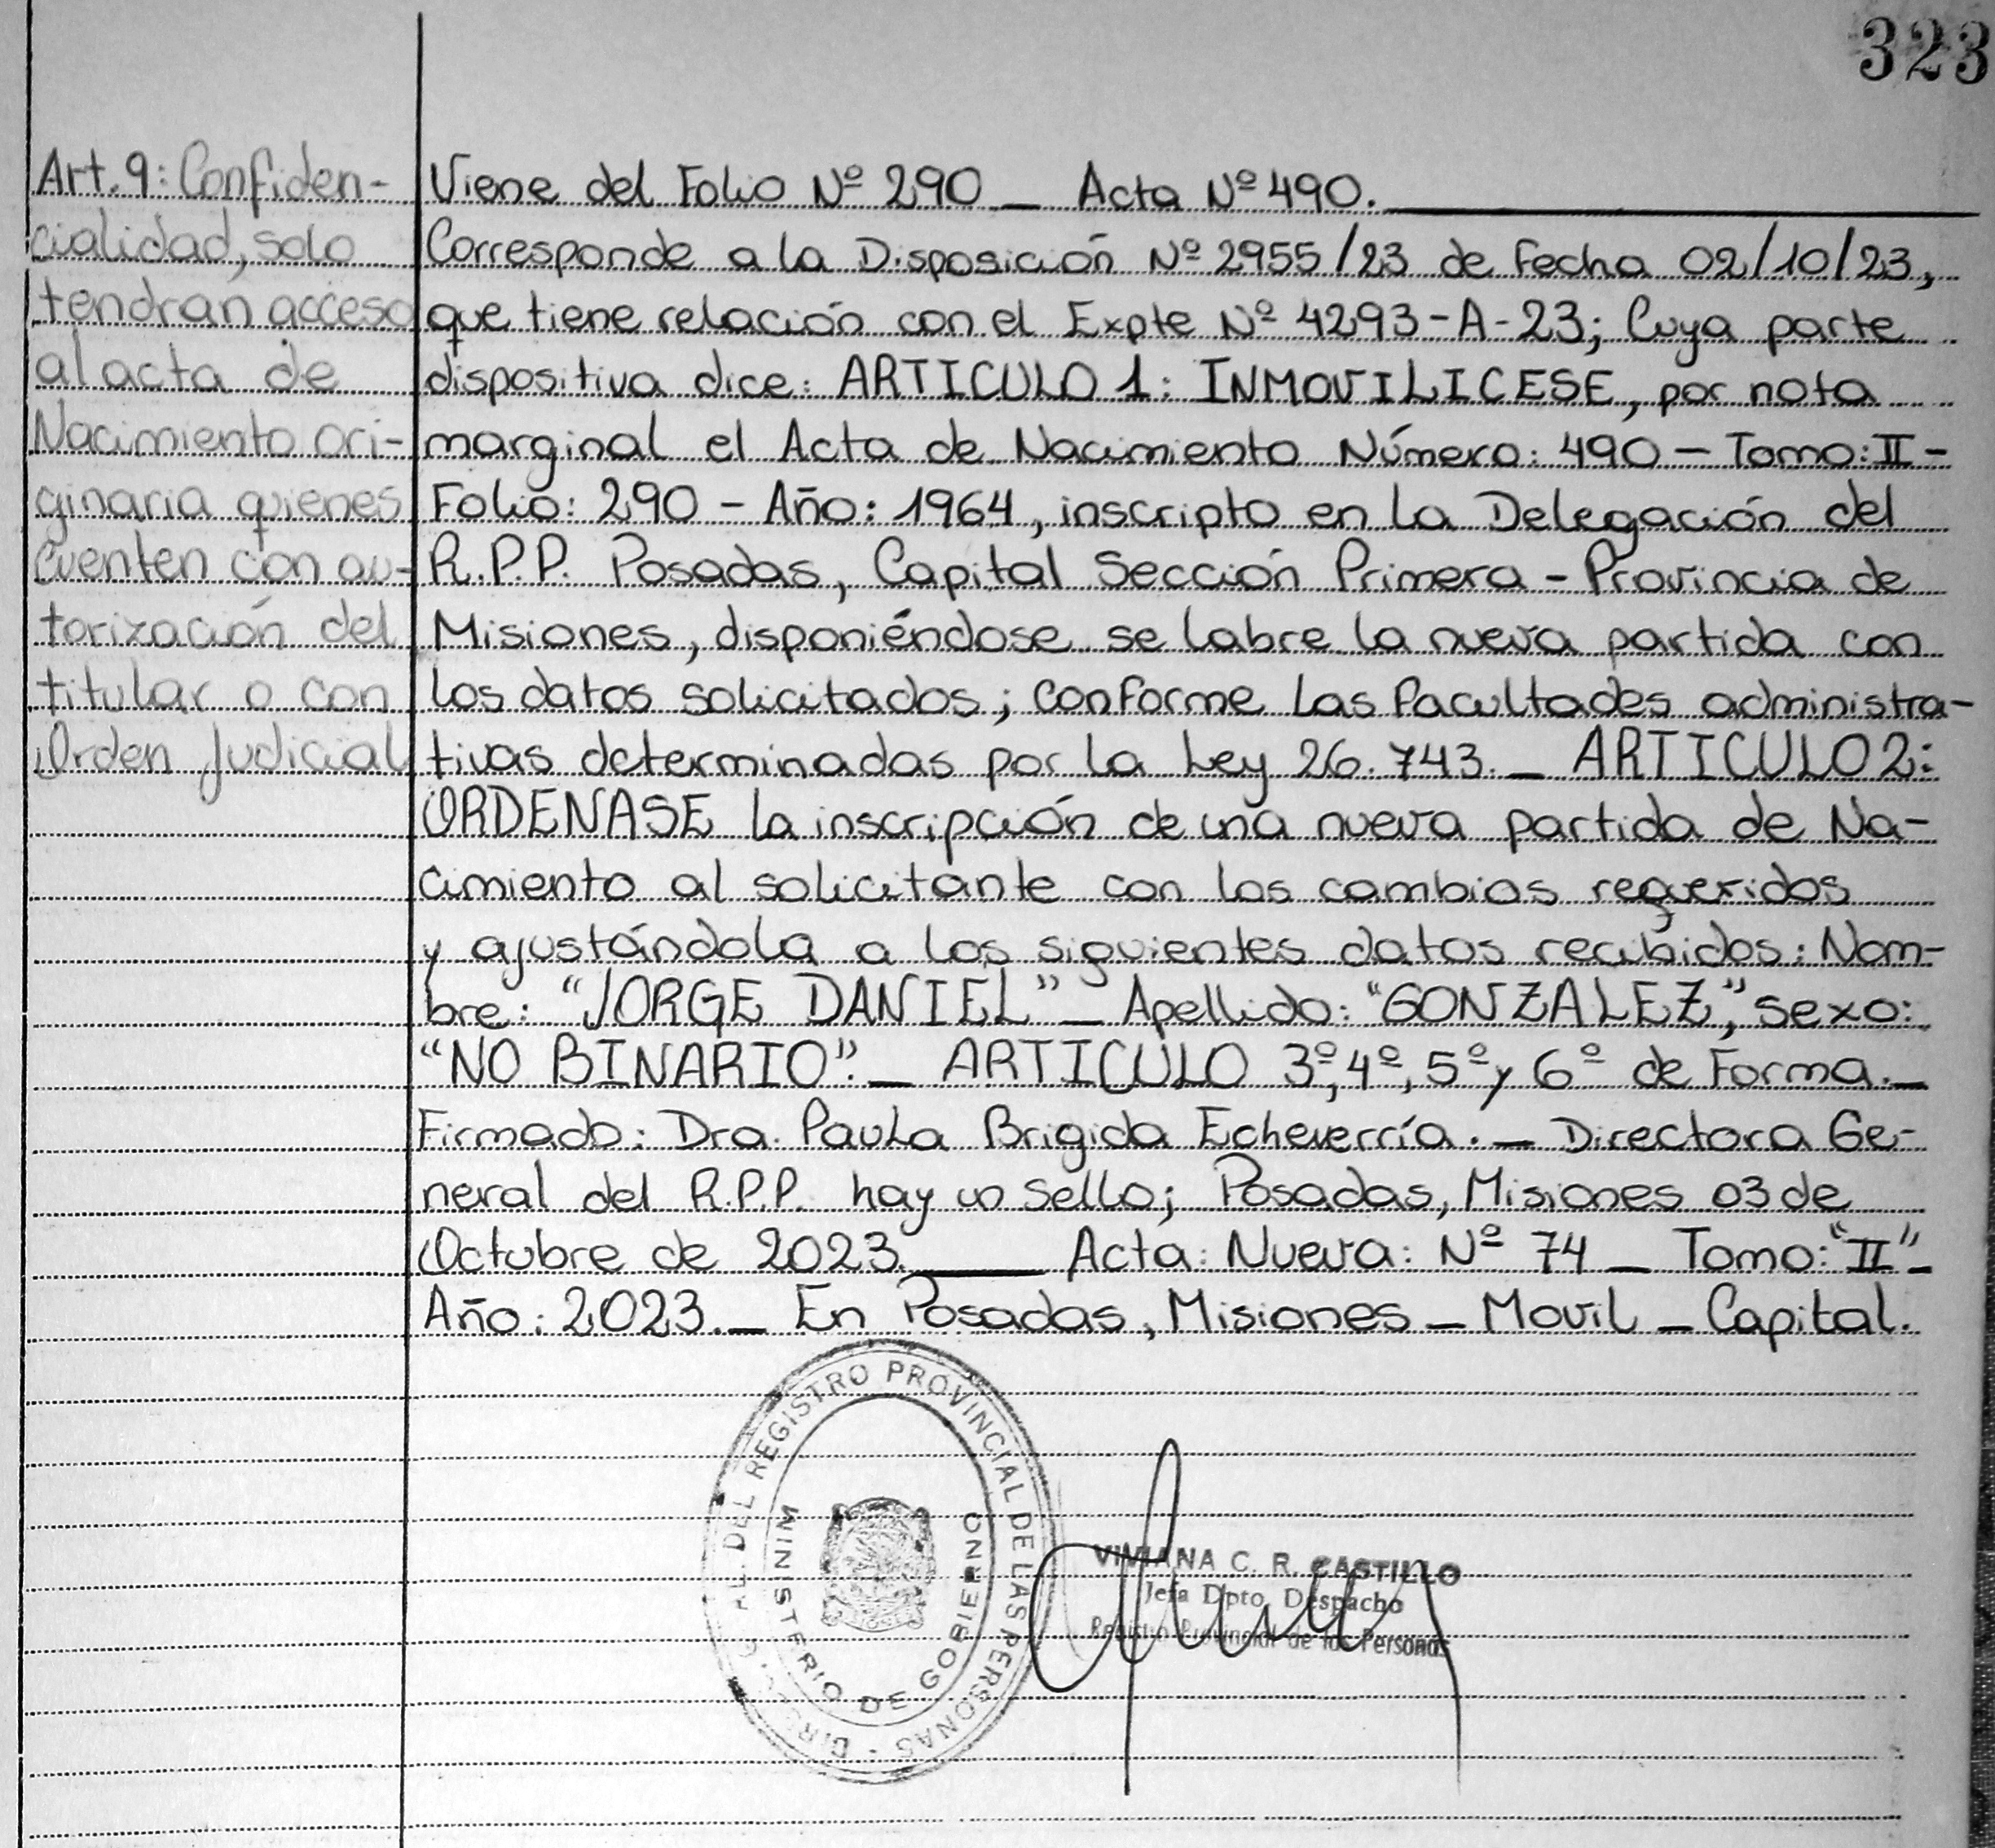 323
Art. 9: Confiden-
cialidad, solo
tendran acceso
al acta de
Nacimiento ori-
ginaria quienes
cuenten con au-
torización del
titular o con
Orden Judicial
Viene del Folio Nº 290 _ Acta Nº 490.
Corresponde a la Disposición Nº 2955/23 de Fecha 02/10/23,
que tiene relación con el Expte Nº 4293-A-23; Cuya parte
dispositiva dice: ARTICULO 1: INMOVILICESE, por nota
marginal el Acta de Nacimiento Número: 490 - Tomo: II -
Folio: 290 - Año: 1964, inscripto en la Delegación del
R.P.P. Posadas, Capital Sección Primera - Provincia de
Misiones, disponiéndose se labre la nueva partida con
los datos solicitados; conforme las facultades administra-
tivas determinadas por la Ley 26.743. _ ARTICULO 2:
ORDENASE la inscripción de una nueva partida de Na-
cimiento al solicitante con los cambios requeridos
y ajustándola a los siguientes datos recibidos: Nom-
bre: "JORGE DANIEL" _ Apellido: "GONZALEZ", sexo:
"NO BINARIO". _ ARTICULO 3º, 4º, 5º y 6º de Forma. _
Firmado: Dra. Paula Brigida Echeverría. _ Directora Ge-
neral del R.P.P. hay un sello; Posadas, Misiones 03 de
Octubre de 2023. _ Acta: Nueva: Nº 74 _ Tomo: "II" _
Año: 2023. _ En Posadas, Misiones _ Movil _ Capital.
DEL REGISTRO PROVINCIAL DE LAS PERSONAS
MINISTERIO DE GOBIERNO
VIVIANA C. R. CASTILLO
Jefa Dpto. Despacho
Registro Provincial de las Personas